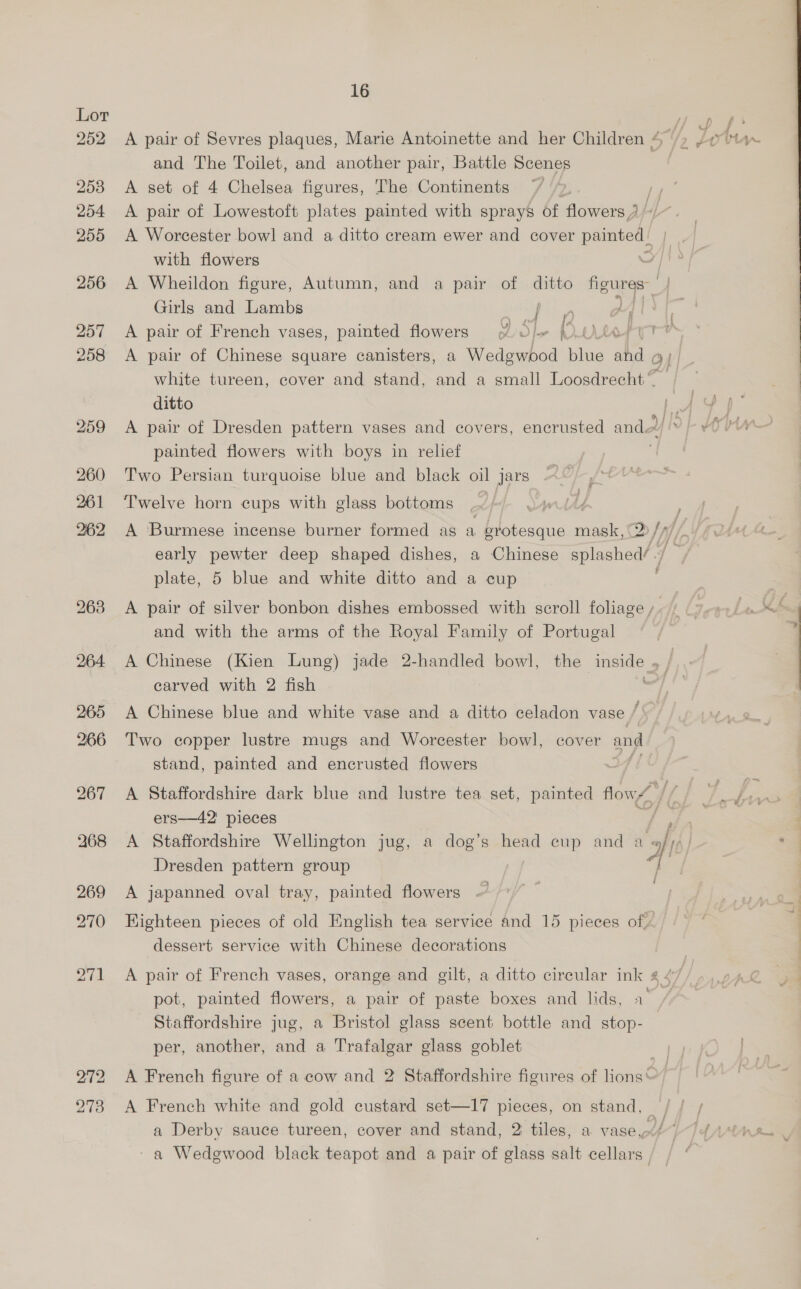 16
Lot
252 A pair of Sevres plaques, Marie Antoinette and her Children
and The Toilet, and another pair, Battle Scenes
253 A set of 4 Chelsea figures, The Continents
254 A pair of Lowestoft plates painted with sprays of flowers
255 A Worcester bowl and a ditto cream ewer and cover painted
with flowers
256 A Wheildon figure, Autumn, and a pair of ditto figures
Girls and Lambs
257 A pair of French vases, painted flowers
258 A pair of Chinese square canisters, a Wedgwood blue and
white tureen, cover and stand, and a small Loosdrecht
ditto
259 A pair of Dresden pattern vases and covers, encrusted and
painted flowers with boys in relief
260 Two Persian turquoise blue and black oil jars
261 Twelve horn cups with glass bottoms
262 A Burmese incense burner formed as a grotesque mask, 2
early pewter deep shaped dishes, a Chinese splashed
plate, 5 blue and white ditto and a cup
263 A pair of silver bonbon dishes embossed with scroll foliage
and with the arms of the Royal Family of Portugal
264 A Chinese (Kien Lung) jade 2-handled bowl, the inside
carved with 2 fish
265 A Chinese blue and white vase and a ditto celadon vase
266 Two copper lustre mugs and Worcester bowl, cover and
stand, painted and encrusted flowers
267 A Staffordshire dark blue and lustre tea set, painted flow-
ers—42 pieces
268 A Staffordshire Wellington jug, a dog's head cup and a
Dresden pattern group
269 A japanned oval tray, painted flowers
270 Eighteen pieces of old English tea service and 15 pieces of
dessert service with Chinese decorations
271 A pair of French vases, orange and gilt, a ditto circular ink
pot, painted flowers, a pair of paste boxes and lids, a
Staffordshire jug, a Bristol glass scent bottle and stop-
per, another, and a Trafalgar glass goblet
272 A French figure of a cow and 2 Staffordshire figures of lions
273 A French white and gold custard set—17 pieces, on stand,
a Derby sauce tureen, cover and stand, 2 tiles, a vase,
a Wedgwood black teapot and a pair of glass salt cellars